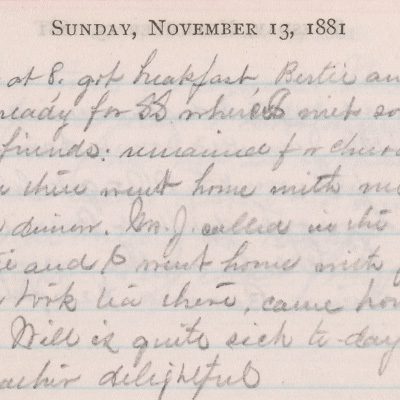 SUNDAY, NOVEMBER 13, 1881
at 8, got breakfast, Bertie an
ready for SS where I met so
friends: remained for chur
then went home with me
dinner. Mr. J. called in the
and I went home with
took tea there, came ho
Will is quite sick to-day
delightful